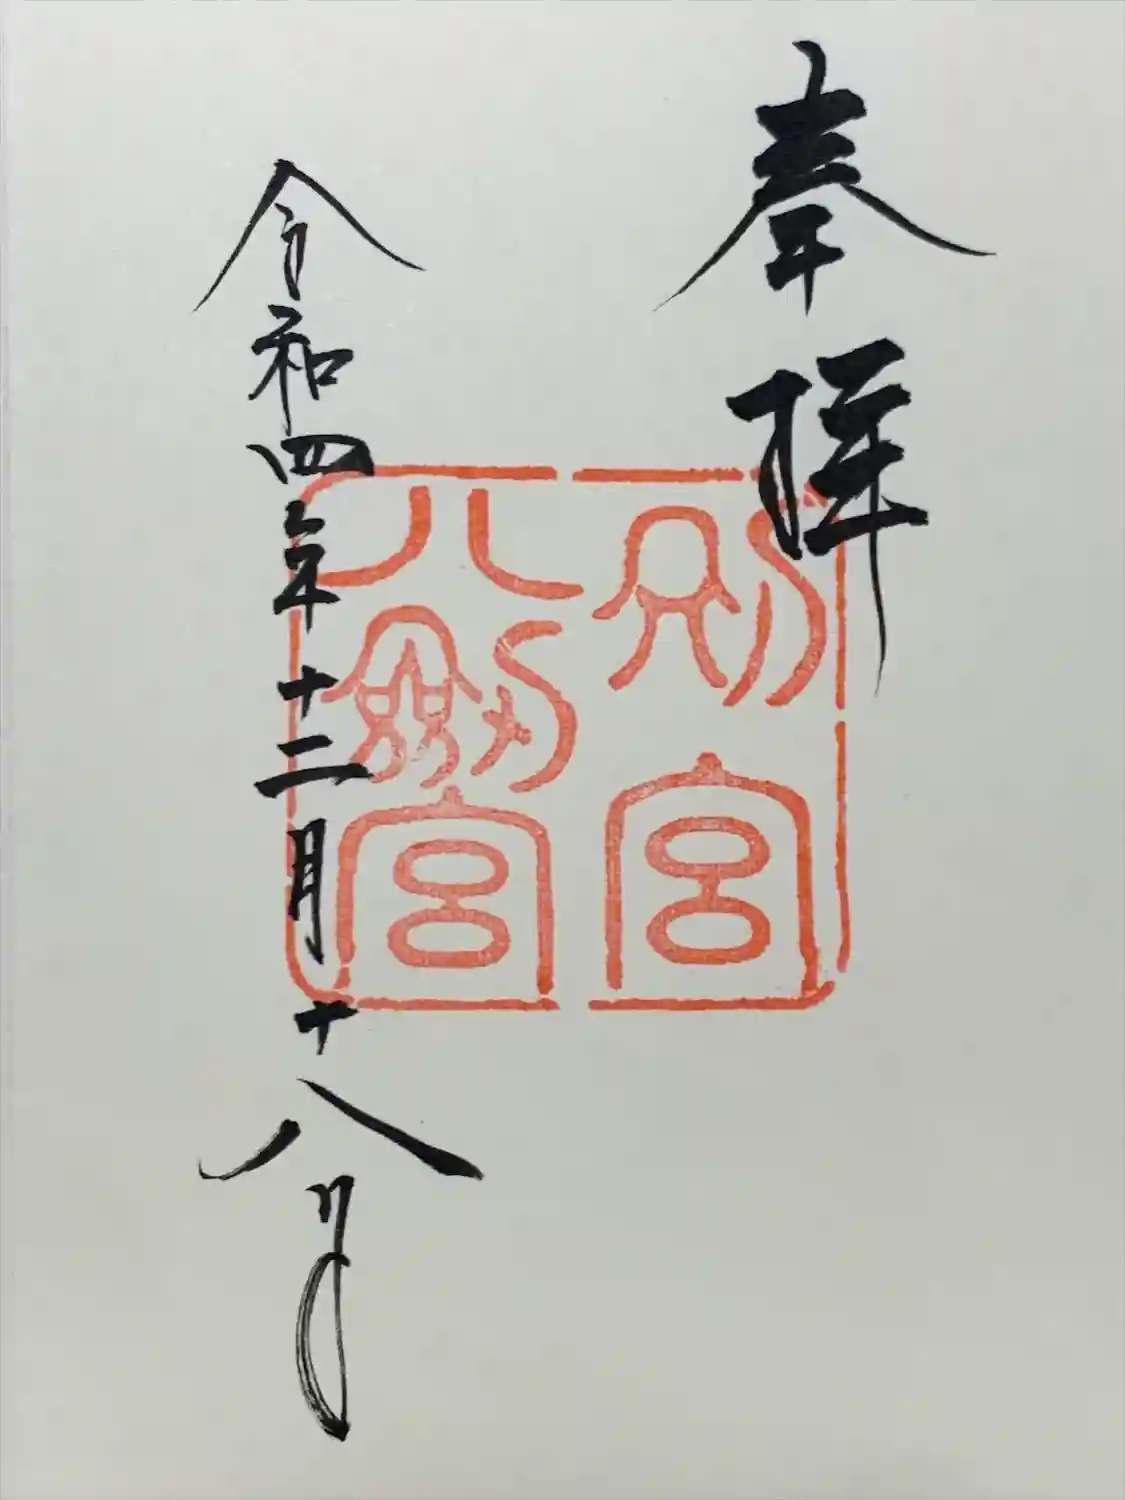 奉拝
別宮
八劔宮
令和四年十二月十八日